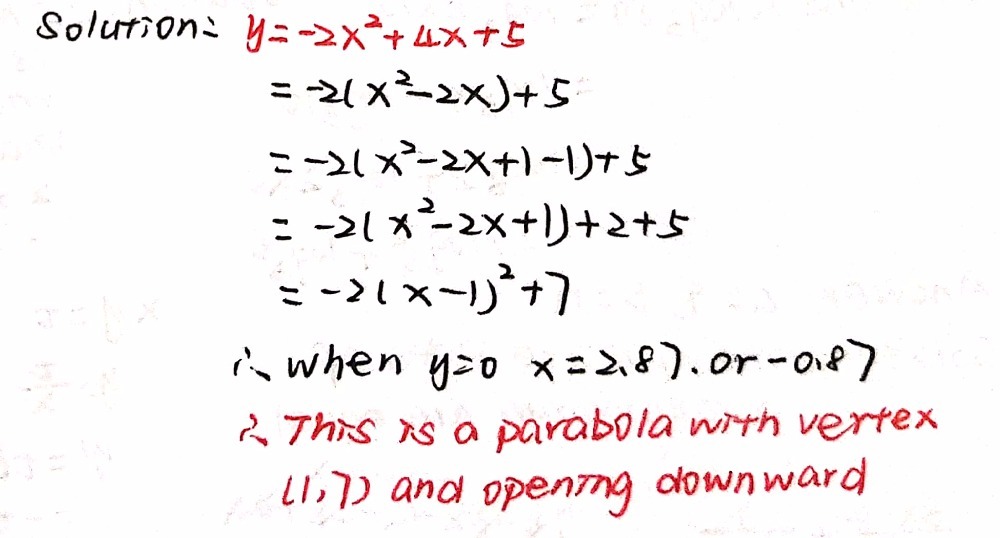 Solution: y=-2x²+4x+5
=-2(x²-2x)+5
=-2(x²-2x+1-1)+5
=-2(x²-2x+1)+2+5
=-2(x-1)²+7
∴ when y=0 x=2.87. or -0.87
∴ This is a parabola with vertex
(1,7) and opening downward